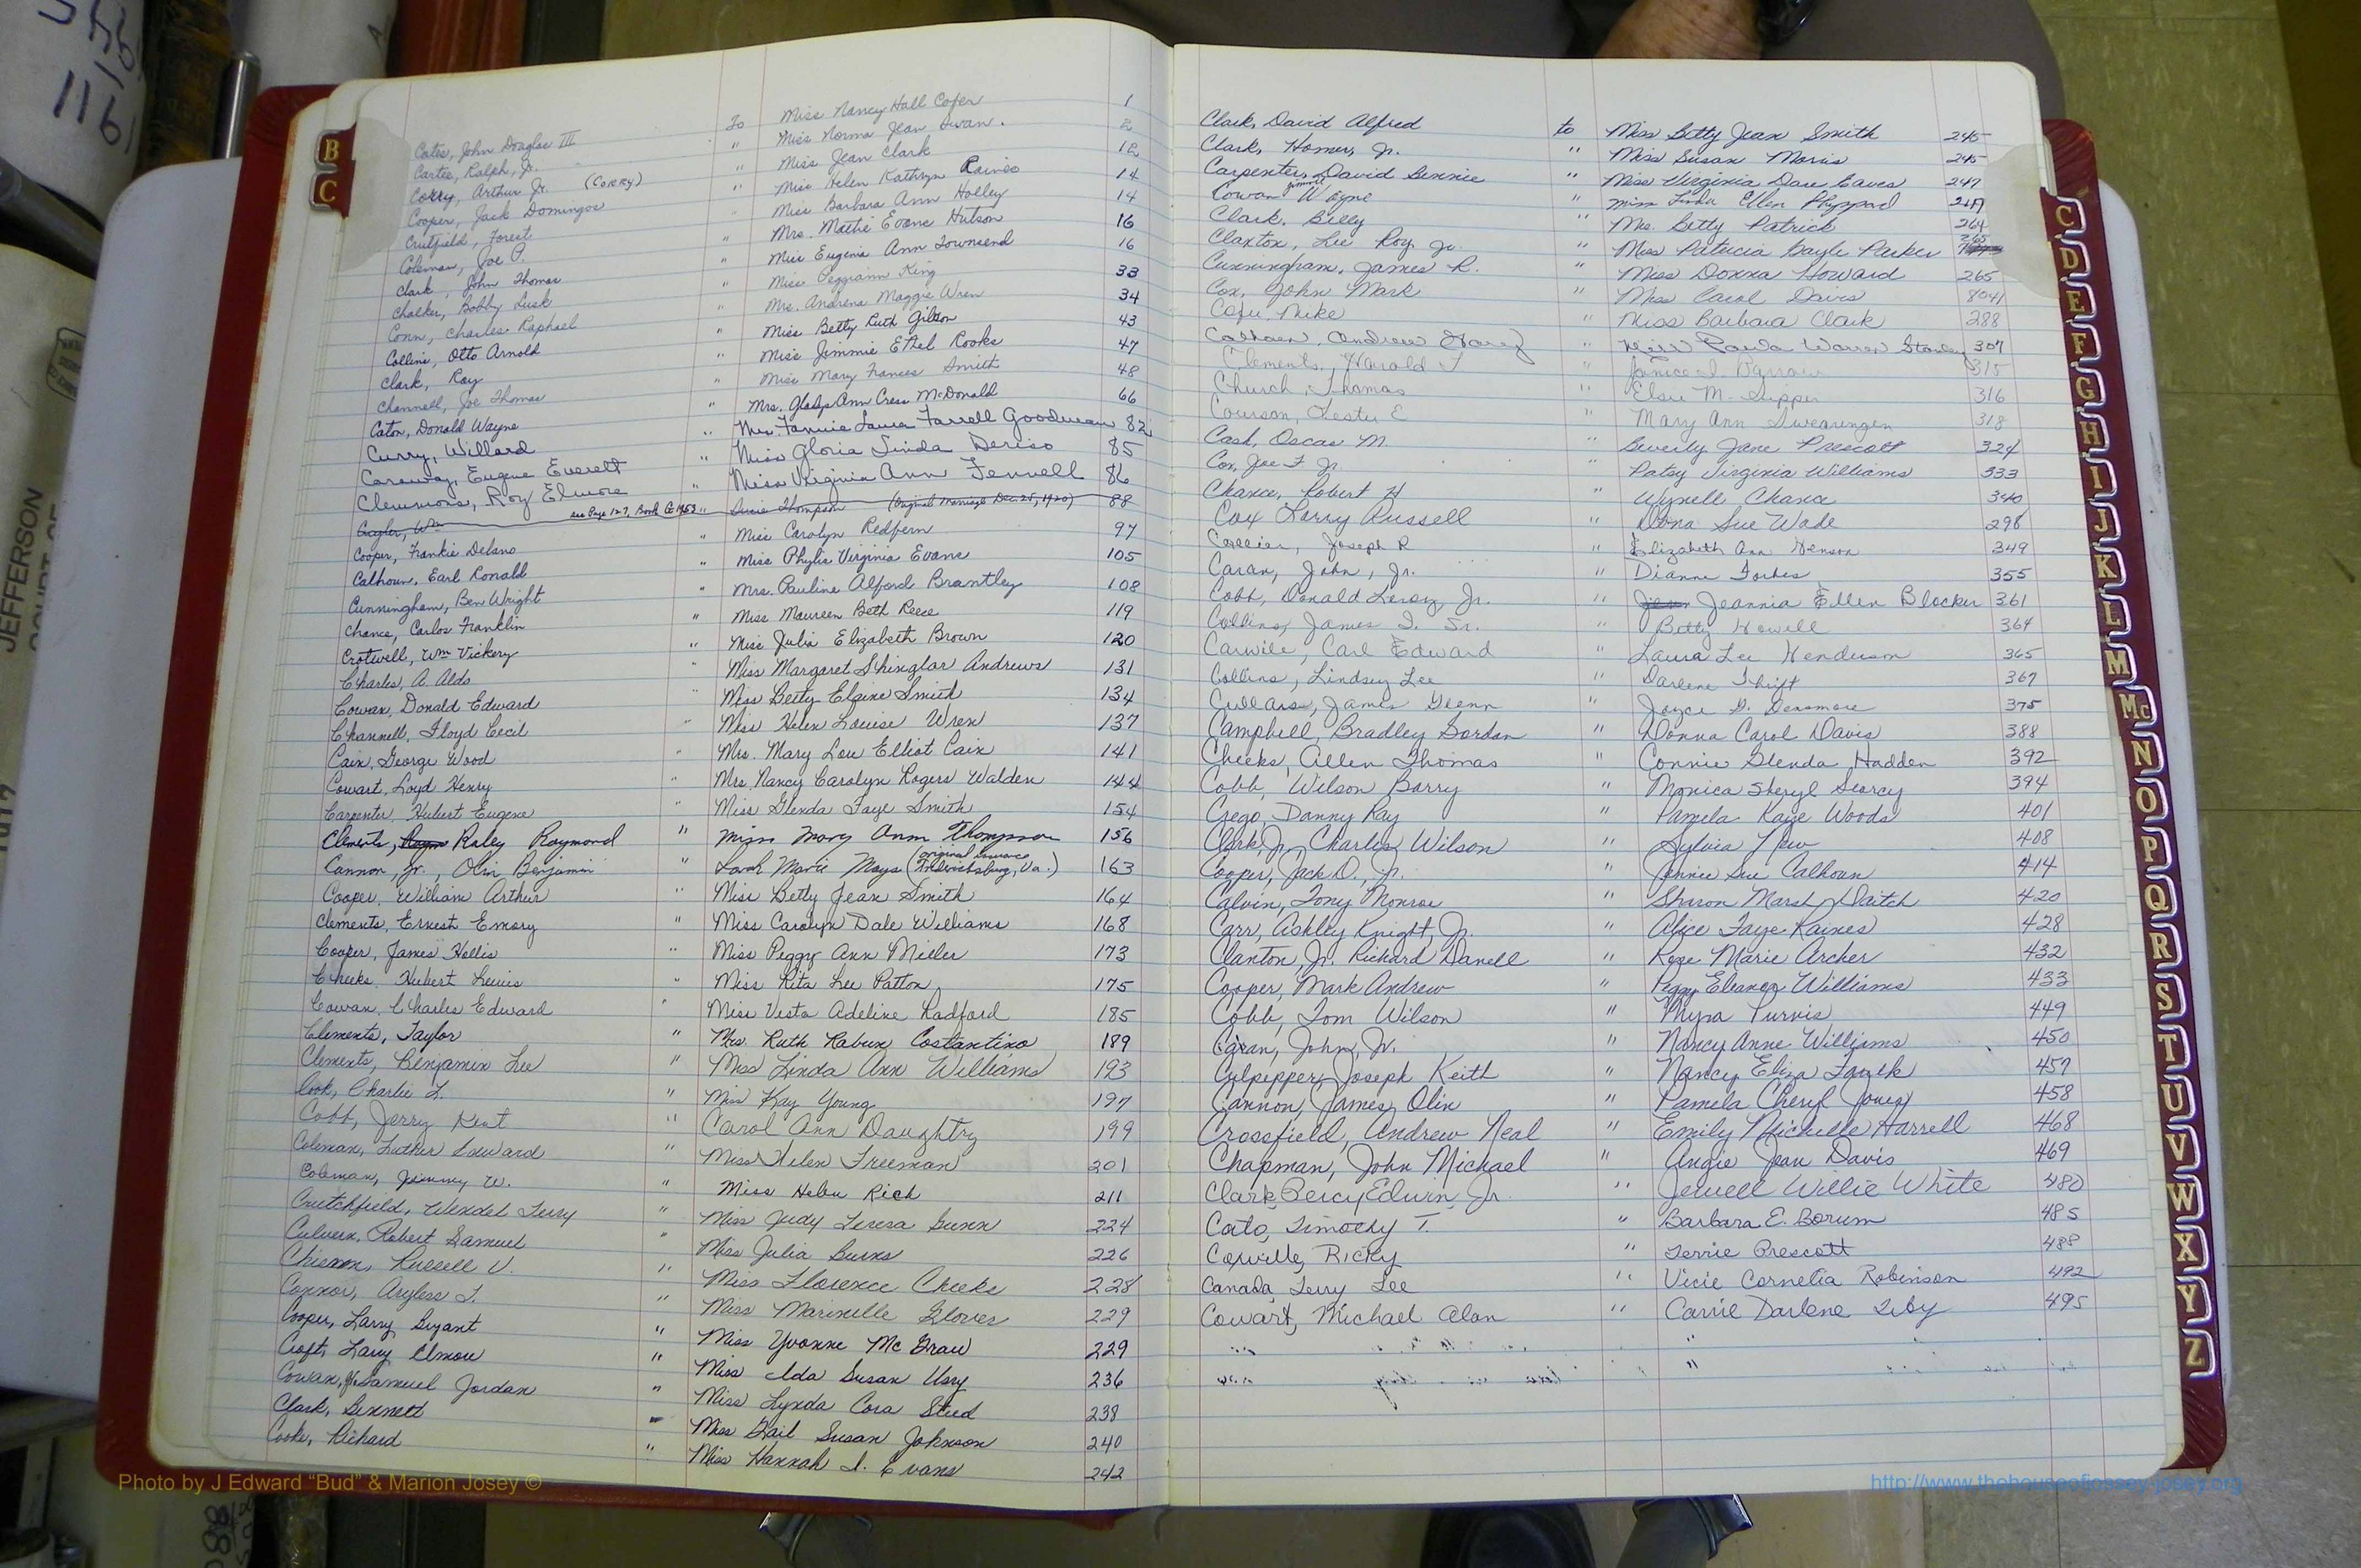 Cates, John Douglas III To Miss Nancy Hall Cofer 1
Carter, Ralph, Jr. " Miss Norma Jean Swan. 2
Corry, Arthur Jr. (CORRY) " Miss Jean Clark 12
Cooper, Jack Domingos " Miss Helen Kathryn Raines 14
Crutfield, Forest " Miss Barbara Ann Holley 14
Coleman, Joe P. " Mrs. Mattie Evans Hutson 16
Clark, John Thomas " Miss Eugenia Ann Townsend 16
Chalker, Bobby Lusk " Miss Peggiann King 33
Conn, Charles Raphael " Mrs. Andrena Maggie Wren 34
Collins, Otto Arnold " Miss Betty Ruth Gilton 43
Clark, Roy " Miss Jimmie Ethel Rooks 47
Channell, Joe Thomas " Miss Mary Frances Smith 48
Caton, Donald Wayne " Mrs. Gladys Ann Cress McDonald 66
Curry, Willard " Mrs. Fannie Laura Farrell Goodman 82
Caraway, Eugene Everett " Miss Gloria Linda Deriso 85
Clemmons, Roy Elmore " Miss Virginia Ann Fennell 86
Wm see Page 127, Book " Susie Thompson (Original Marriage Dec. 25, 1920) 88
Cooper, Frankie Delano " Miss Carolyn Redfern 97
Calhoun, Earl Ronald " Miss Phylis Virginia Evans 105
Cunningham, Ben Wright " Mrs. Pauline Alford Brantley 108
Chance, Carlos Franklin " Miss Maureen Beth Reese 119
Crotwell, Wm Vickery " Miss Julia Elizabeth Brown 120
Charles, A. Aldo " Miss Margaret Shinglar Andrews 131
Cowan, Donald Edward " Miss Betty Elaine Smith 134
Channell, Floyd Cecil " Miss Helen Louise Wren 137
Cain, George Wood " Mrs. Mary Lou Elliot Cain 141
Cowart, Loyd Henry " Mrs. Nancy Carolyn Rogers Walden 144
Carpenter, Hubert Eugene " Miss Glenda Faye Smith 154
Clements, Raley Raymond " Miss Mary Ann Thompson 156
Cannon, Jr., Olin Benjamin " Sarah Marie Mays (original issuance Fredericksburg, Va.) 163
Cooper, William Arthur " Miss Betty Jean Smith 164
Clements, Ernest Emory " Miss Carolyn Dale Williams 168
Cooper, James Hollis " Miss Peggy Ann Miller 173
Cheeks, Hubert Lewis " Miss Rita Lee Patton 175
Cowan, Charles Edward " Miss Vesta Adeline Radford 185
Clements, Taylor " Mrs. Ruth Rabun Costantino 189
Clements, Benjamin Lee " Miss Linda Ann Williams 193
Cook, Charlie L. " Miss Kay Young 197
Cobb, Jerry Kent " Carol Ann Daughtry 199
Coleman, Luther Edward " Miss Helen Freeman 201
Coleman, Jimmy W. " Miss Helen Rich 211
Crutchfield, Wendel Terry " Miss Judy Teresa Gunn 224
Culvern, Robert Samuel " Miss Julia Burns 226
Chisman, Russell V. " Miss Florence Cheeks 228
Connor, Aryless J. " Miss Marinelle Glover 229
Cooper, Larry Bryant " Miss Yvonne McGraw 229
Croft, Larry Elmore " Miss Ida Susan Usry 236
Cowan, Jr. Samuel Jordan " Miss Lynda Cora Steed 238
Clark, Bennett " Miss Gail Susan Johnson 240
Cooke, Richard " Miss Hannah I. Evans 242
Clark, David Alfred to Miss Betty Jean Smith 245
Clark, Homer, Jr. " Miss Susan Morris 245
Carpenter, David Bennie " Miss Virginia Dare Eaves 247
Cowan Jimmy Wayne " Miss Linda Ellen Phyppard 247
Clark, Billy " Mrs. Betty Patrick 264
Claxton, Lee Roy, Jr. " Miss Patricia Gayle Parker 265
Cunningham, James R. " Miss Donna Howard 265
Cox, John Mark " Miss Carol Davis 8041
Cofer, Mike " Miss Barbara Clark 288
Calhoun, Andrew Harry " Miss Paula Warren Stanley 307
Clements, Harold T " Janice I. Barrow 315
Church, Thomas " Elsie M. Tripper 316
Courson, Lester E " Mary Ann Swearengen 318
Cash, Oscar M. " Beverly Jane Prescott 324
Cox, Joe F. Jr. " Patsy Virginia Williams 333
Chance, Robert H " Wynell Chance 340
Cox Larry Russell " Dona Sue Wade 298
Collier, Joseph R " Elizabeth Ann Henson 349
Caran, John, Jr. " Dianne Forbes 355
Cobb, Donald Leroy, Jr. " Jeannia Ellen Blocker 361
Collins, James I. Sr. " Betty Howell 364
Carwile, Carl Edward " Laura Lee Henderson 365
Collins, Lindsey Lee " Darlene Thrift 367
Cullars, James Glenn " Joyce D. Densmore 375
Campbell, Bradley Gordon " Donna Carol Davis 388
Cheeks, Allen Thomas " Connie Glenda Hadden 392
Cobb, Wilson Barry " Monica Sheryl Searcy 394
Crego, Danny Ray " Pamela Kaye Woods 401
Clark, Jr., Charles Wilson " Sylvia New 408
Cooper, Jack D., Jr. " Jennie Sue Calhoun 414
Calvin, Tony Monroe " Sharon Marsh Daitch 420
Carr, Ashley Knight, Jr. " Alice Faye Raines 428
Clanton, Jr. Richard Danell " Rose Marie Archer 432
Cooper, Mark Andrew " Peggy Eleanor Williams 433
Cobb, Tom Wilson " Myra Purvis 449
Caran, John, Jr. " Nancy Anne Williams 450
Culpepper, Joseph Keith " Nancy Eliza Faulk 457
Cannon, James Olin " Pamela Cheryl Jones 458
Crossfield, Andrew Neal " Emily Michelle Harrell 468
Chapman, John Michael " Angie Jean Davis 469
Clark, Percy Edwin, Jr. " Jewell Willie White 480
Cato, Timothy T. " Barbara E. Borum 485
Corville, Ricky " Terrie Prescott 488
Canada, Terry Lee " Vicie Cornelia Robinson 492
Cowart, Michael Alan " Carrie Darlene Liby 495
B
C
C
D
E
F
G
H
I
J
K
L
M
Mc
N
O
P
Q
R
S
T
U
V
W
X
Y
Z
JEFFERSON
1161
Photo by J Edward “Bud” & Marion Josey ©
http://www.thehouseofjossey-josey.org